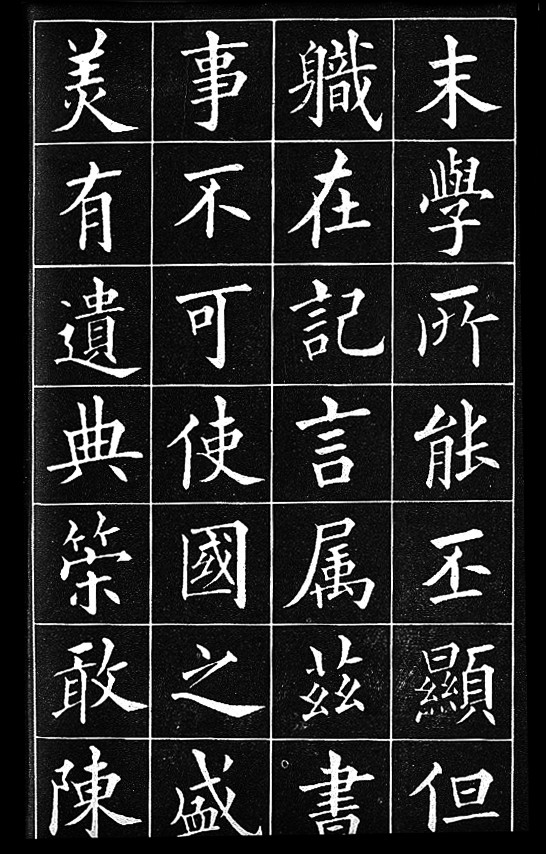 末學所能丕顯但
職在記言属茲書
事不可使國之盛
美有遺典策敢陳